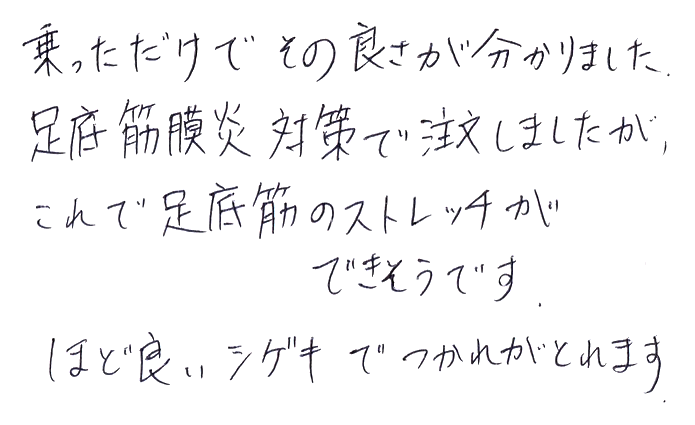 乗っただけでその良さが分かりました.
足底筋膜炎対策で注文しましたが,
これで足底筋のストレッチが
できそうです.
ほど良いシゲキでつかれがとれます.